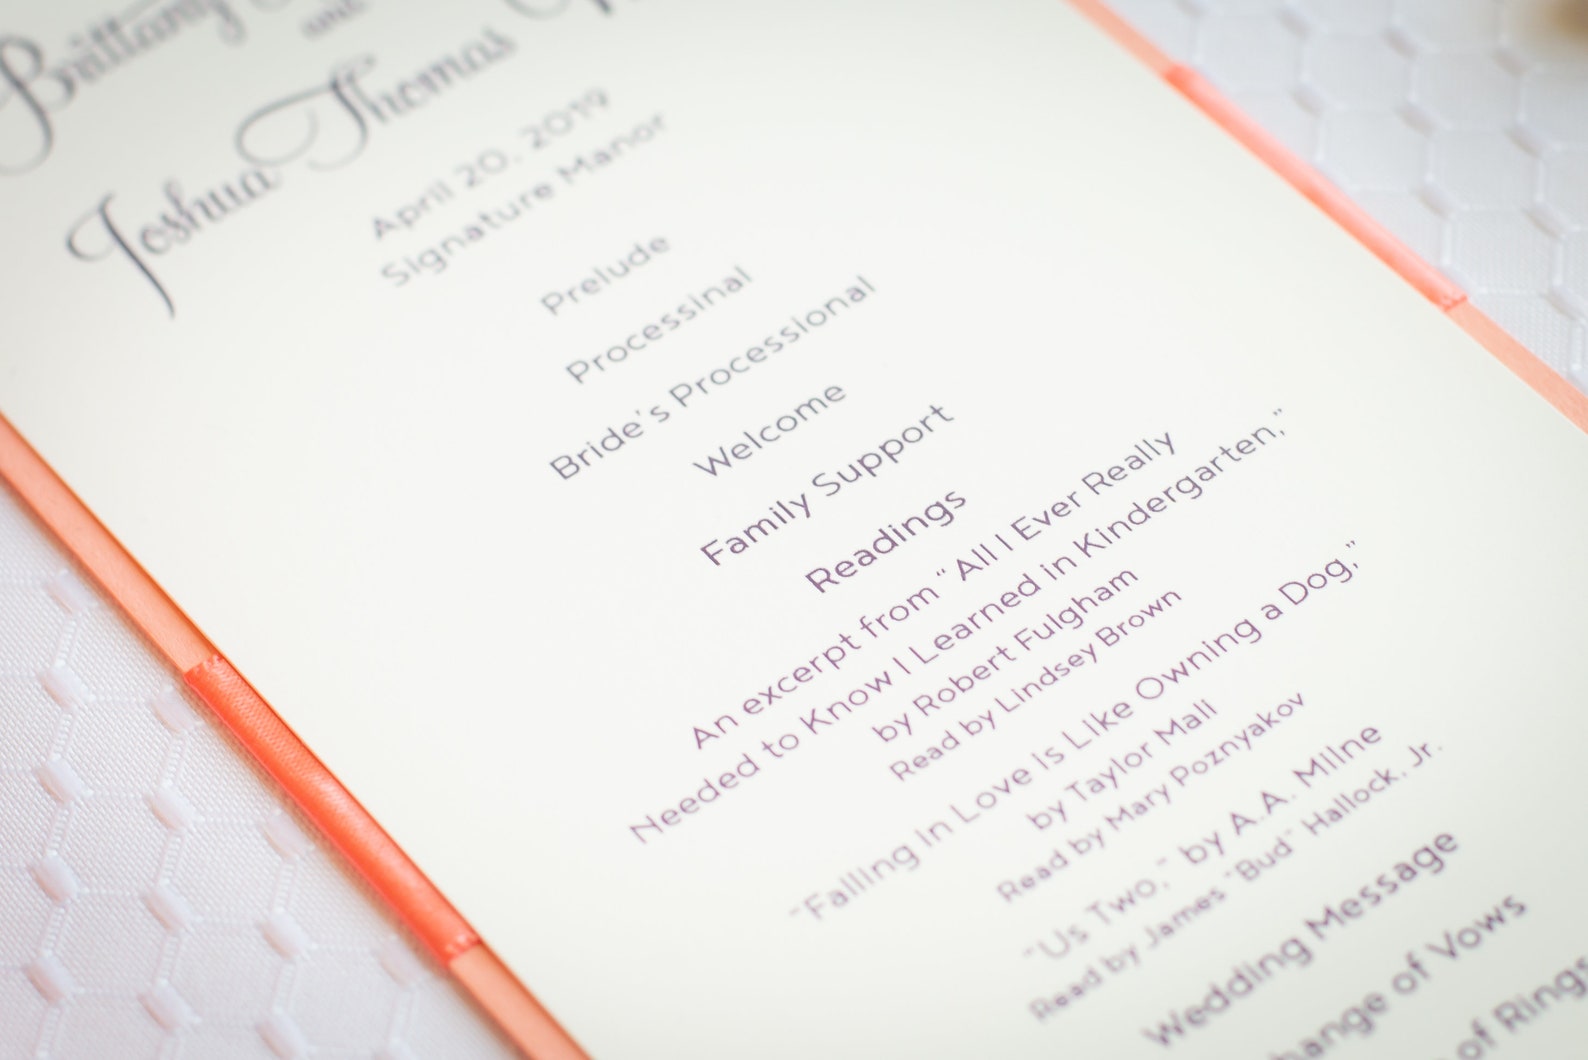 Brittany
and
Joshua Thomas
April 20, 2019
Signature Manor
Prelude
Processinal
Bride's Processional
Welcome
Family Support
Readings
An excerpt from “All I Ever Really
Needed to Know I Learned in Kindergarten,”
by Robert Fulgham
Read by Lindsey Brown
“Falling in Love is Like Owning a Dog,”
by Taylor Mali
Read by Mary Poznyakov
“Us Two,” by A.A. Milne
Read by James “Bud” Hallock, Jr.
Wedding Message
hange of Vows
of Rings